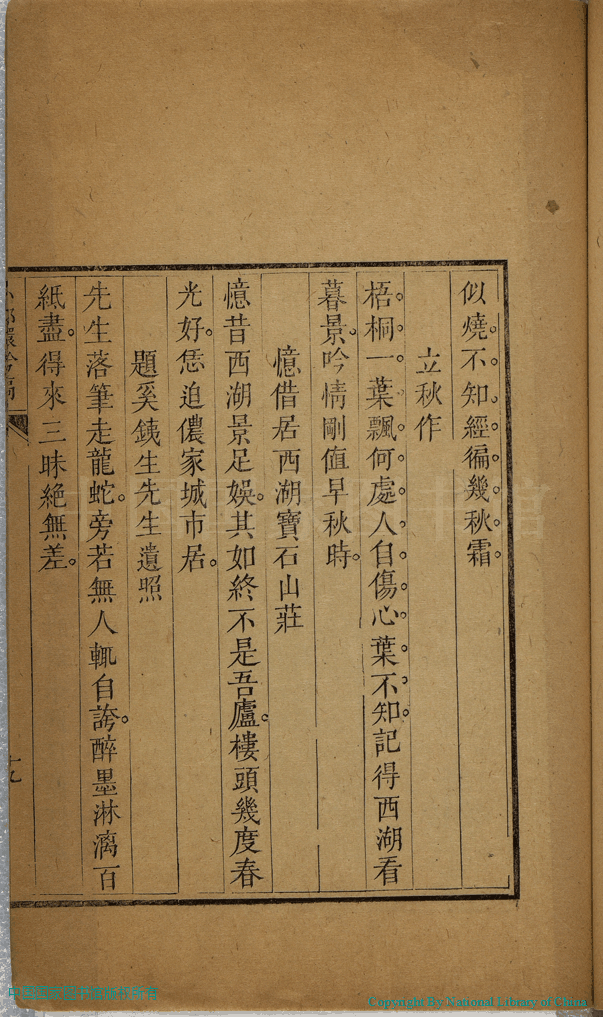 似燒不知經徧幾秋霜
立秋作
梧桐一葉飄何處人自傷心葉不知記得西湖看
暮景吟情剛值早秋時
憶借居西湖寶石山莊
憶昔西湖景足娛其如終不是吾廬樓頭幾度春
光好恁迫儂家城市居
題奚鐵生先生遺照
先生落筆走龍蛇旁若無人輒自誇醉墨淋漓百
紙盡得來三昧絕無差
十九
Copyright By National Library of China